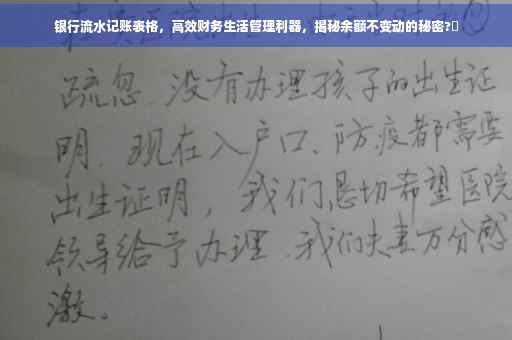 银行流水记账表格，高效财务生活管理利器，揭秘余额不变动的秘密?
疏忽.没有办理孩子的出生证
明.现在入户口、防疫都需要
出生证明，我们恳切希望医院
领导给予办理.我们夫妻万分感
激。